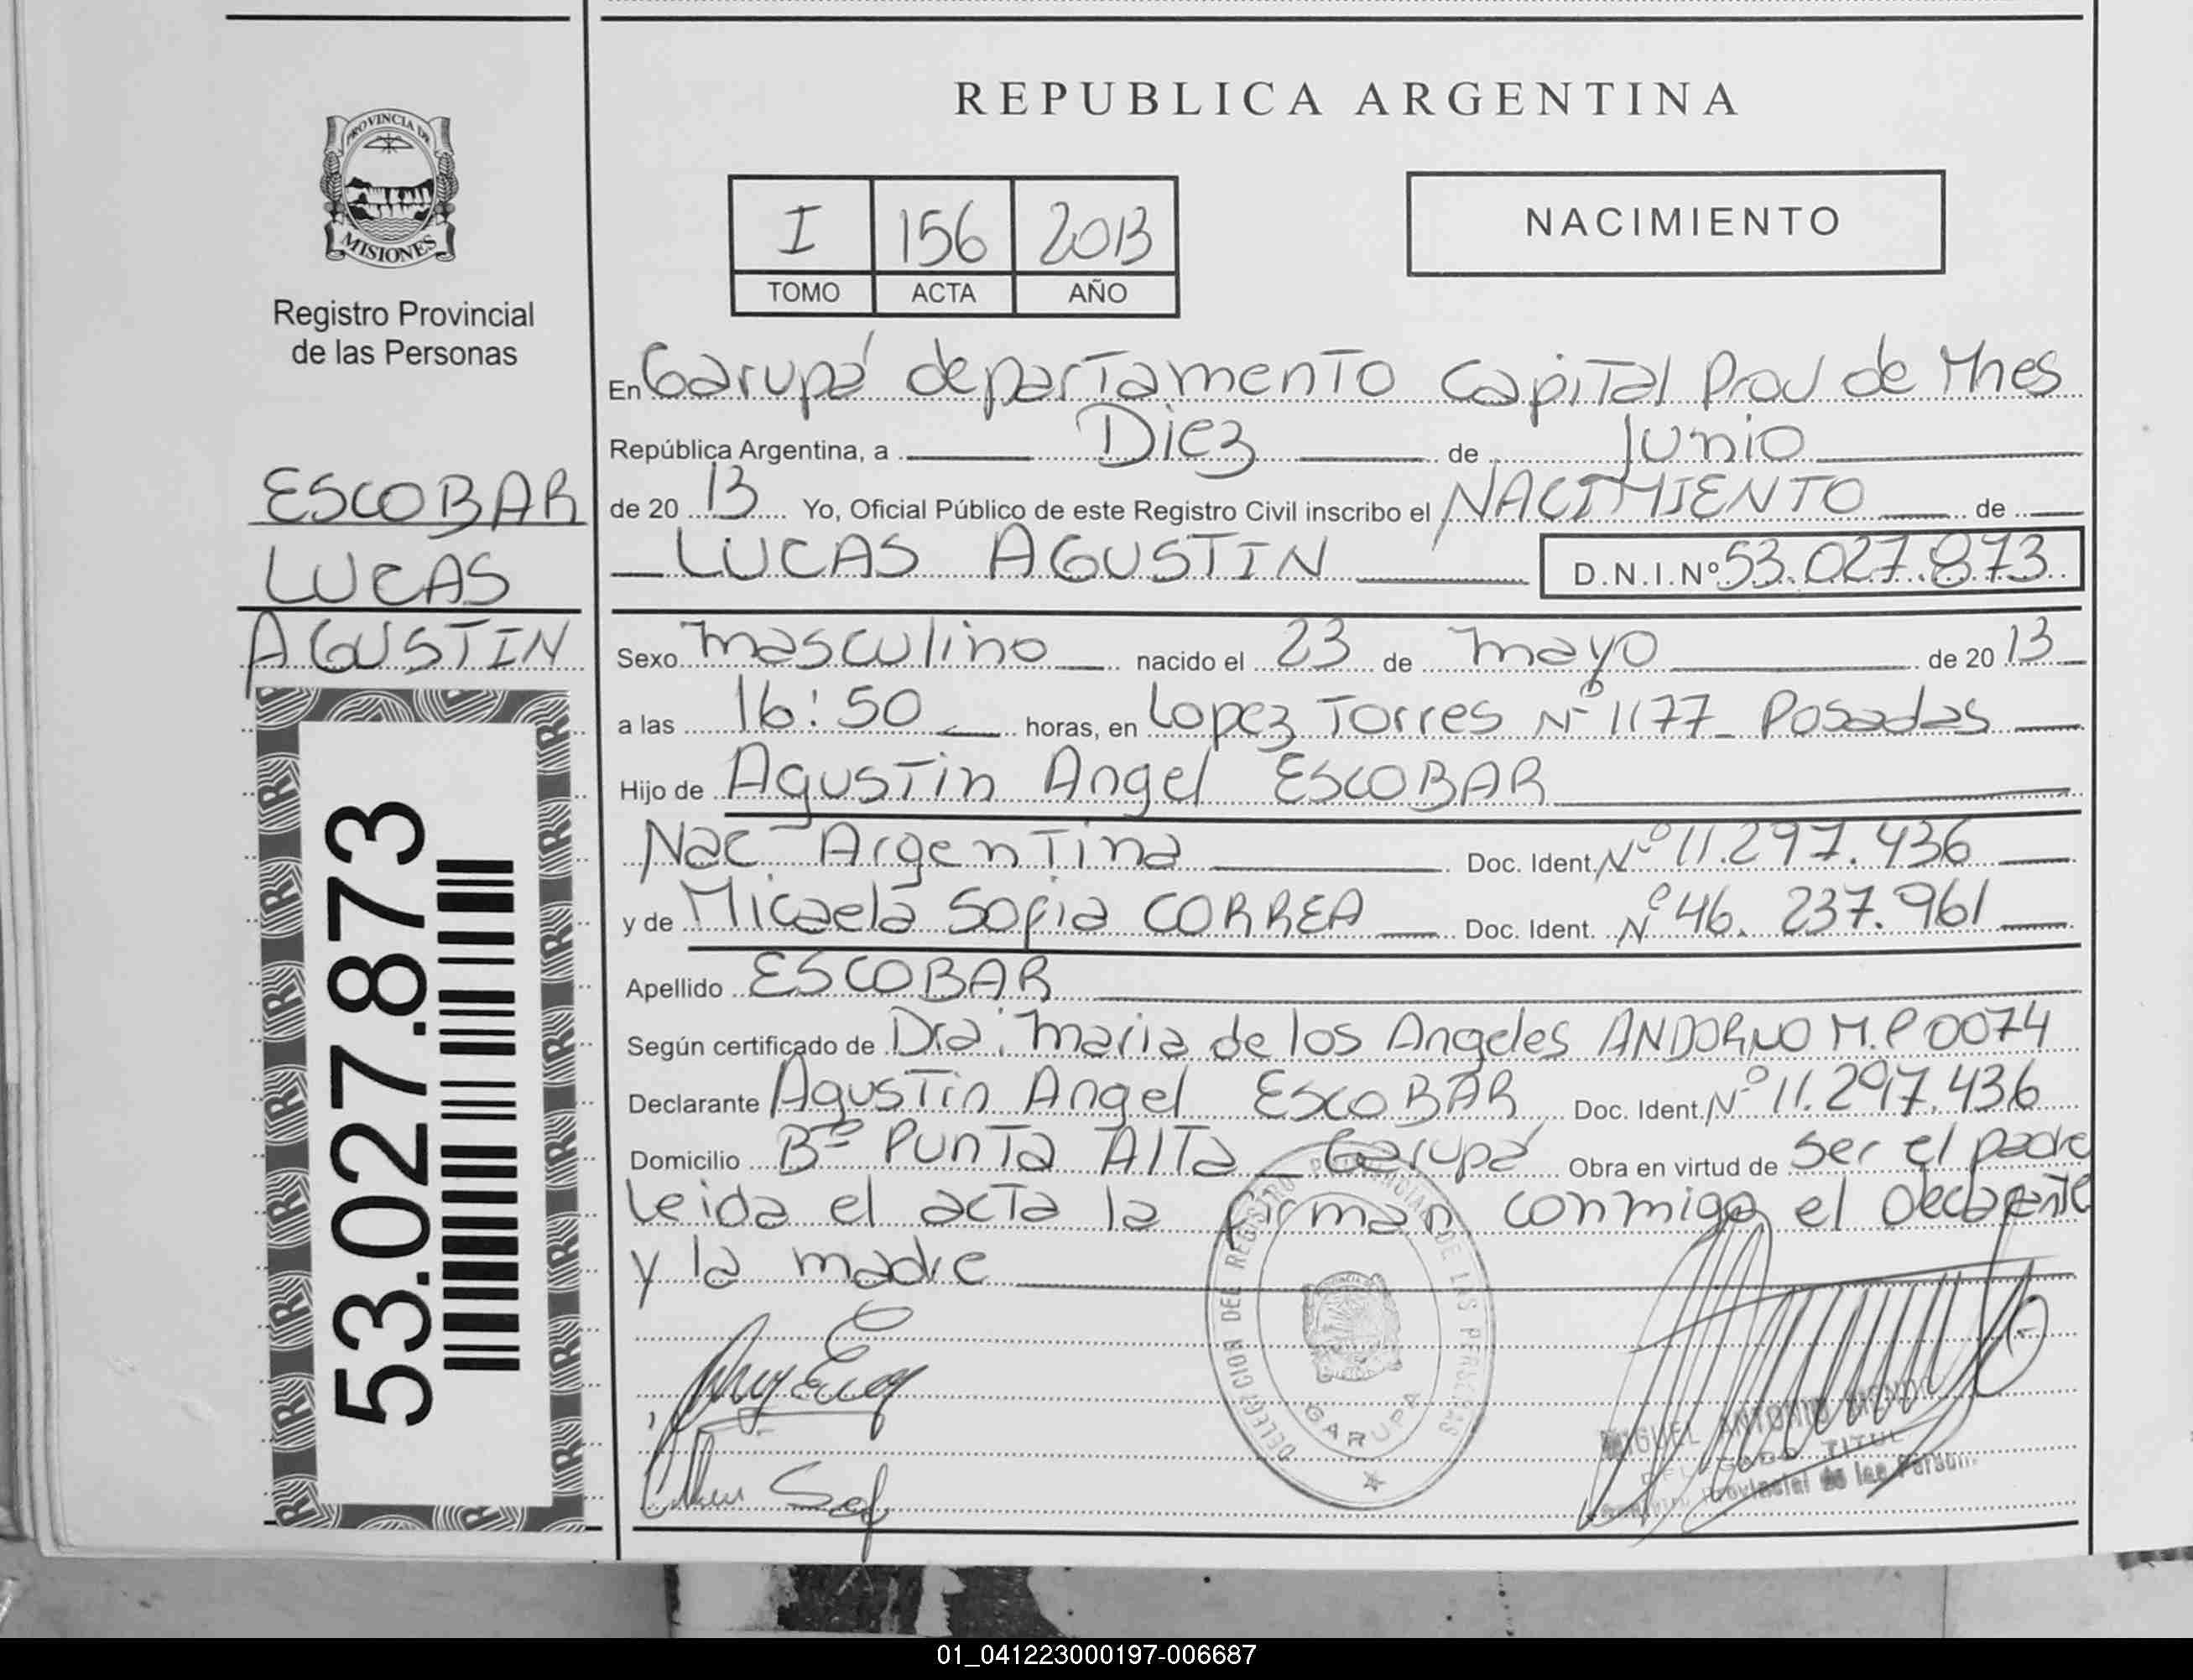 REPUBLICA ARGENTINA
PROVINCIA DE
MISIONES
Registro Provincial
de las Personas
I 156 2013
TOMO ACTA AÑO
NACIMIENTO
ESCOBAR
LUCAS
AGUSTIN
53.027.873
En Garupá departamento Capital Prov de Mnes
República Argentina, a Diez de Junio
de 20 13 Yo, Oficial Público de este Registro Civil inscribo el NACIMIENTO de
LUCAS AGUSTIN D.N.I.Nº 53.027.873
Sexo masculino nacido el 23 de mayo de 20 13
a las 16:50 horas, en Lopez Torres Nº 1177 - Posadas
Hijo de Agustin Angel ESCOBAR
Nac Argentina Doc. Ident. Nº 11.297.436
y de Micaela Sofia CORREA Doc. Ident. Nº 46.237.961
Apellido ESCOBAR
Según certificado de Dra. Maria de los Angeles ANDORNO M.P 0074
Declarante Agustin Angel ESCOBAR Doc. Ident. Nº 11.297.436
Domicilio Bº Punta Alta - Garupá Obra en virtud de ser el padre
Leida el acta la firman conmigo el declarante
y la madre
DELEGACION DEL REGISTRO PROVINCIAL DE LAS PERSONAS
GARUPA
MIGUEL ANTONIO
DELEGADO TITUL
Provincial de las Person
01_041223000197-006687